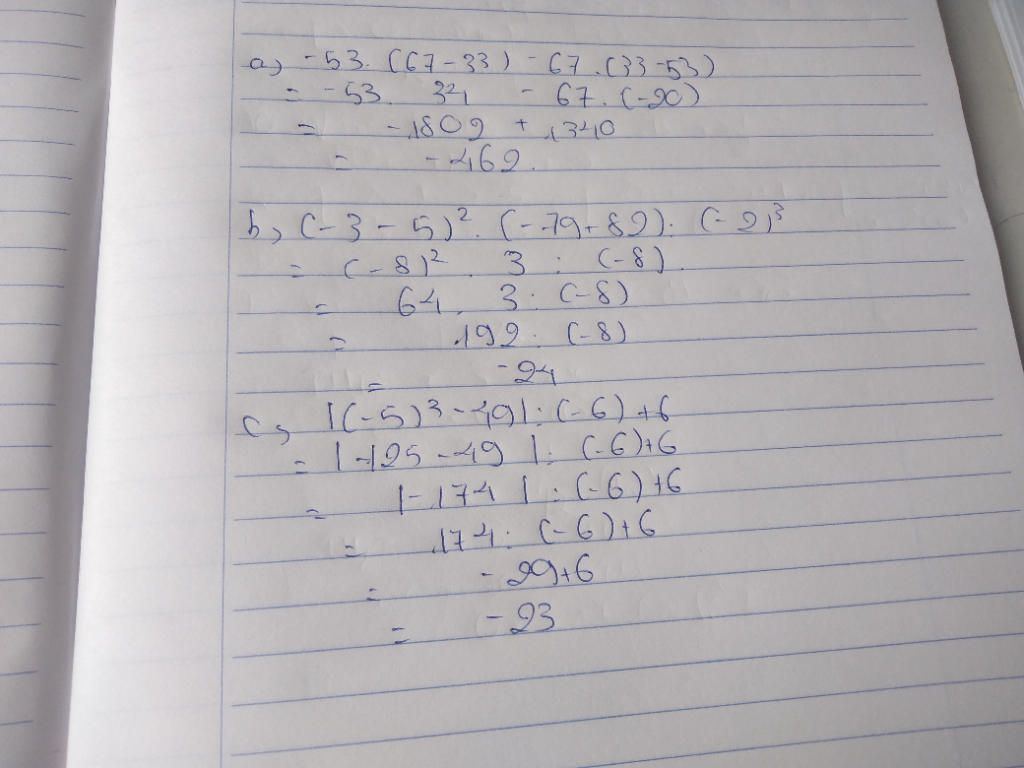 a) -53. (67-33) - 67.(33-53)
= -53. 34 - 67.(-20)
= -1802 + 1340
= -462.
b) (-3-5)². (-79+82): (-2)³
= (-8)². 3 : (-8).
= 64. 3: (-8)
= 192: (-8)
= -24
c) |(-5)³-49|: (-6)+6
= |-125-49|: (-6)+6
= |-174|: (-6)+6
= 174: (-6)+6
= -29+6
= -23